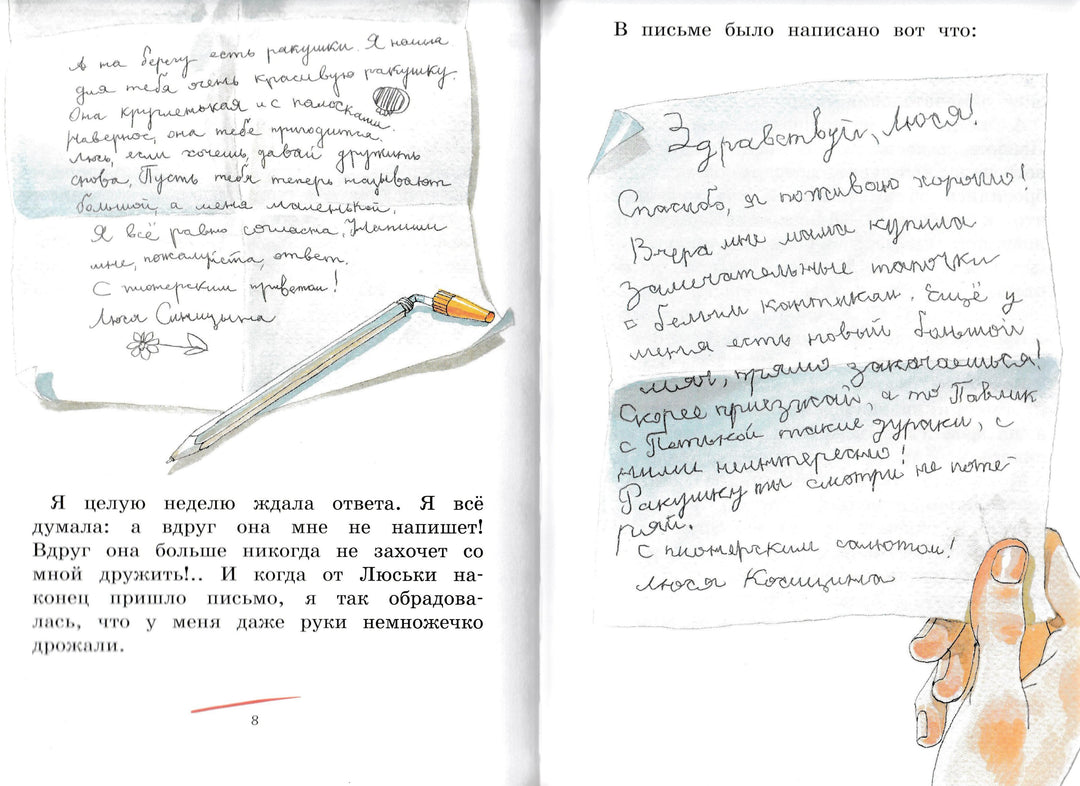 А на берегу есть ракушки. Я нашла
для тебя очень красивую ракушку.
Она кругленькая и с полосками.
Наверное, она тебе пригодится.
Люсь, если хочешь, давай дружить
снова. Пусть тебя теперь называют
большой, а меня маленькой.
Я всё равно согласна. Напиши
мне, пожалуйста, ответ.
С пионерским приветом!
Люся Синицына
Я целую неделю ждала ответа. Я всё
думала: а вдруг она мне не напишет!
Вдруг она больше никогда не захочет со
мной дружить!.. И когда от Люськи на-
конец пришло письмо, я так обрадова-
лась, что у меня даже руки немножечко
дрожали.
8
В письме было написано вот что:
Здравствуй, Люся!
Спасибо, я поживаю хорошо!
Вчера мне мама купила
замечательные тапочки
с белым кантиком. Ещё у
меня есть новый большой
мяч, прямо закачаешься!
Скорее приезжай, а то Павлик
с Петькой такие дураки, с
ними неинтересно!
Ракушку ты смотри не поте-
ряй.
С пионерским салютом!
Люся Косицына